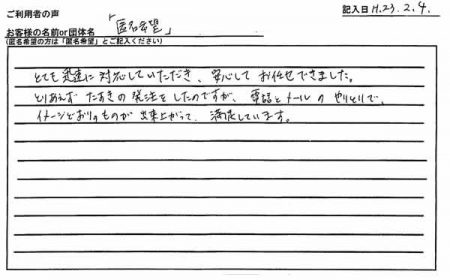 ご利用者の声
記入日 H.23.2.4.
お客様の名前or団体名 「匿名希望」
(匿名希望の方は「匿名希望」とご記入ください)
とても迅速に対応していただき、安心してお任せできました。
とりあえずたすきの発注をしたのですが、電話とメールのやりとりで、
イメージどおりのものが出来上がって、満足しています。